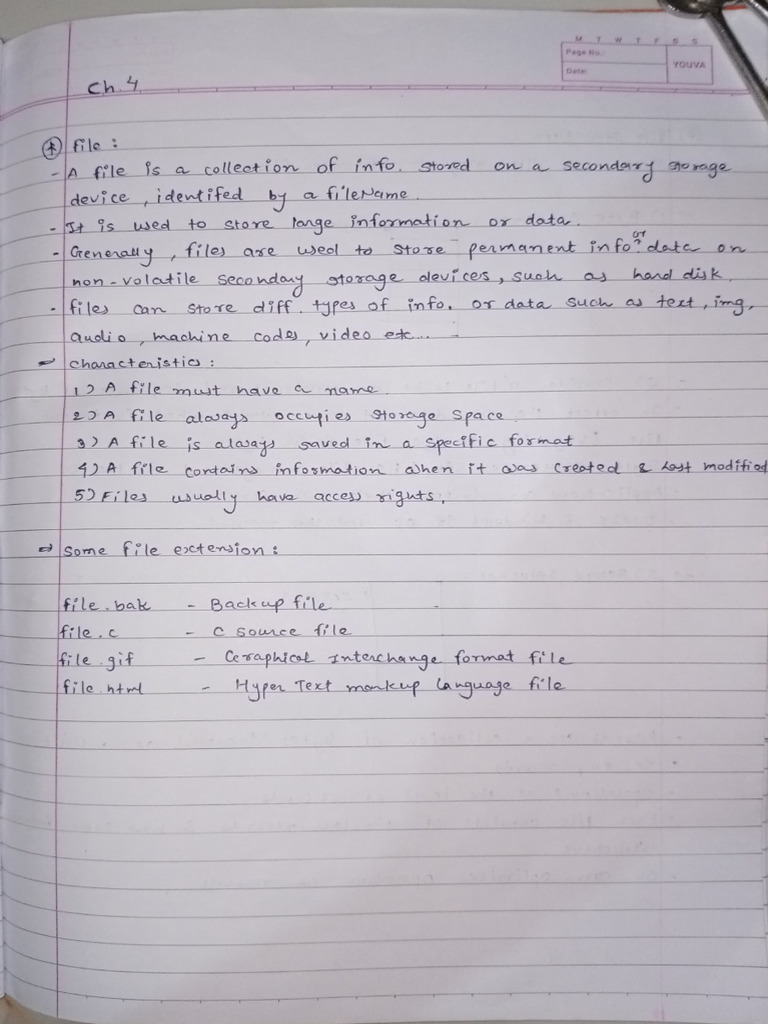 M T W T F S S
Page No.:
YOUVA
Date:
Ch. 4
* file :
- A file is a collection of info. stored on a secondary storage
device , identifed by a fileName.
- It is used to store large information or data.
- Generally , files are used to store permanent info. or data on
non-volatile secondary storage devices, such as hard disk.
- files can store diff. types of info. or data such as text , img,
audio , machine codes, video etc...
characteristics :
1) A file must have a name.
2) A file always occupies storage space
3) A file is always saved in a specific format
4) A file contains information when it was created & last modified
5) Files usually have access rights.
⇒ some file extension :
file.bak - Backup file
file.c - C source file
file.gif - Graphical Interchange format file
file.html - Hyper Text markup language file